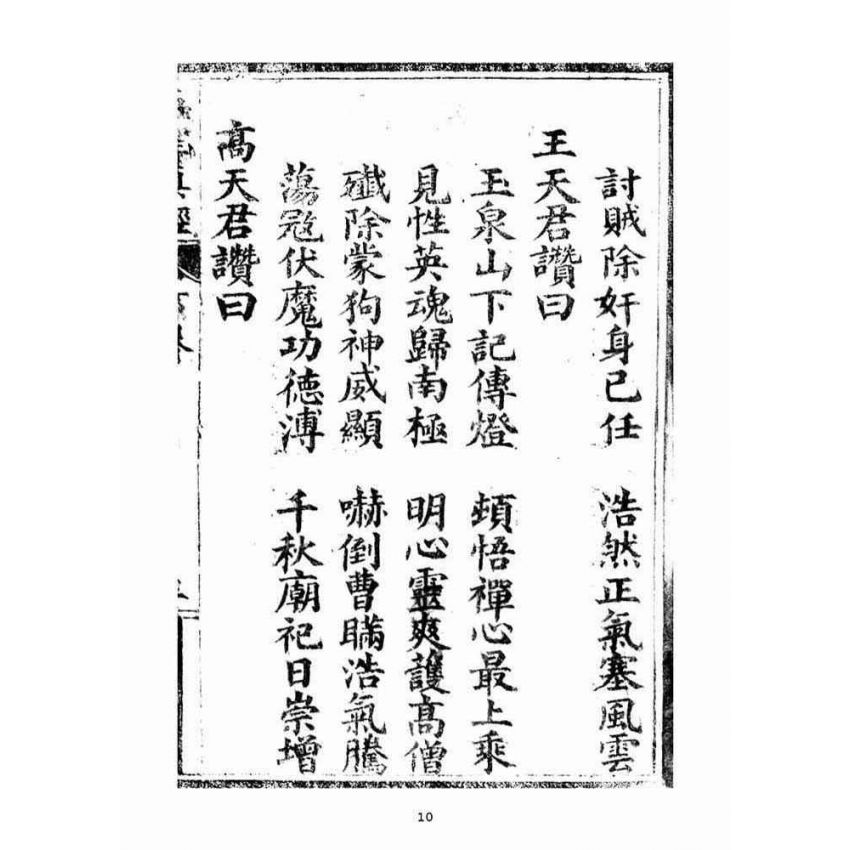 討賊除奸身已任 浩然正氣塞風雲
王天君讚曰
玉泉山下記傳燈 頓悟禪心最上乘
見性英魂歸南極 明心靈爽護高僧
殲除蒙狗神威顯 嚇倒曹瞞浩氣騰
蕩寇伏魔功德溥 千秋廟祀日崇增
高天君讚曰
真經
10